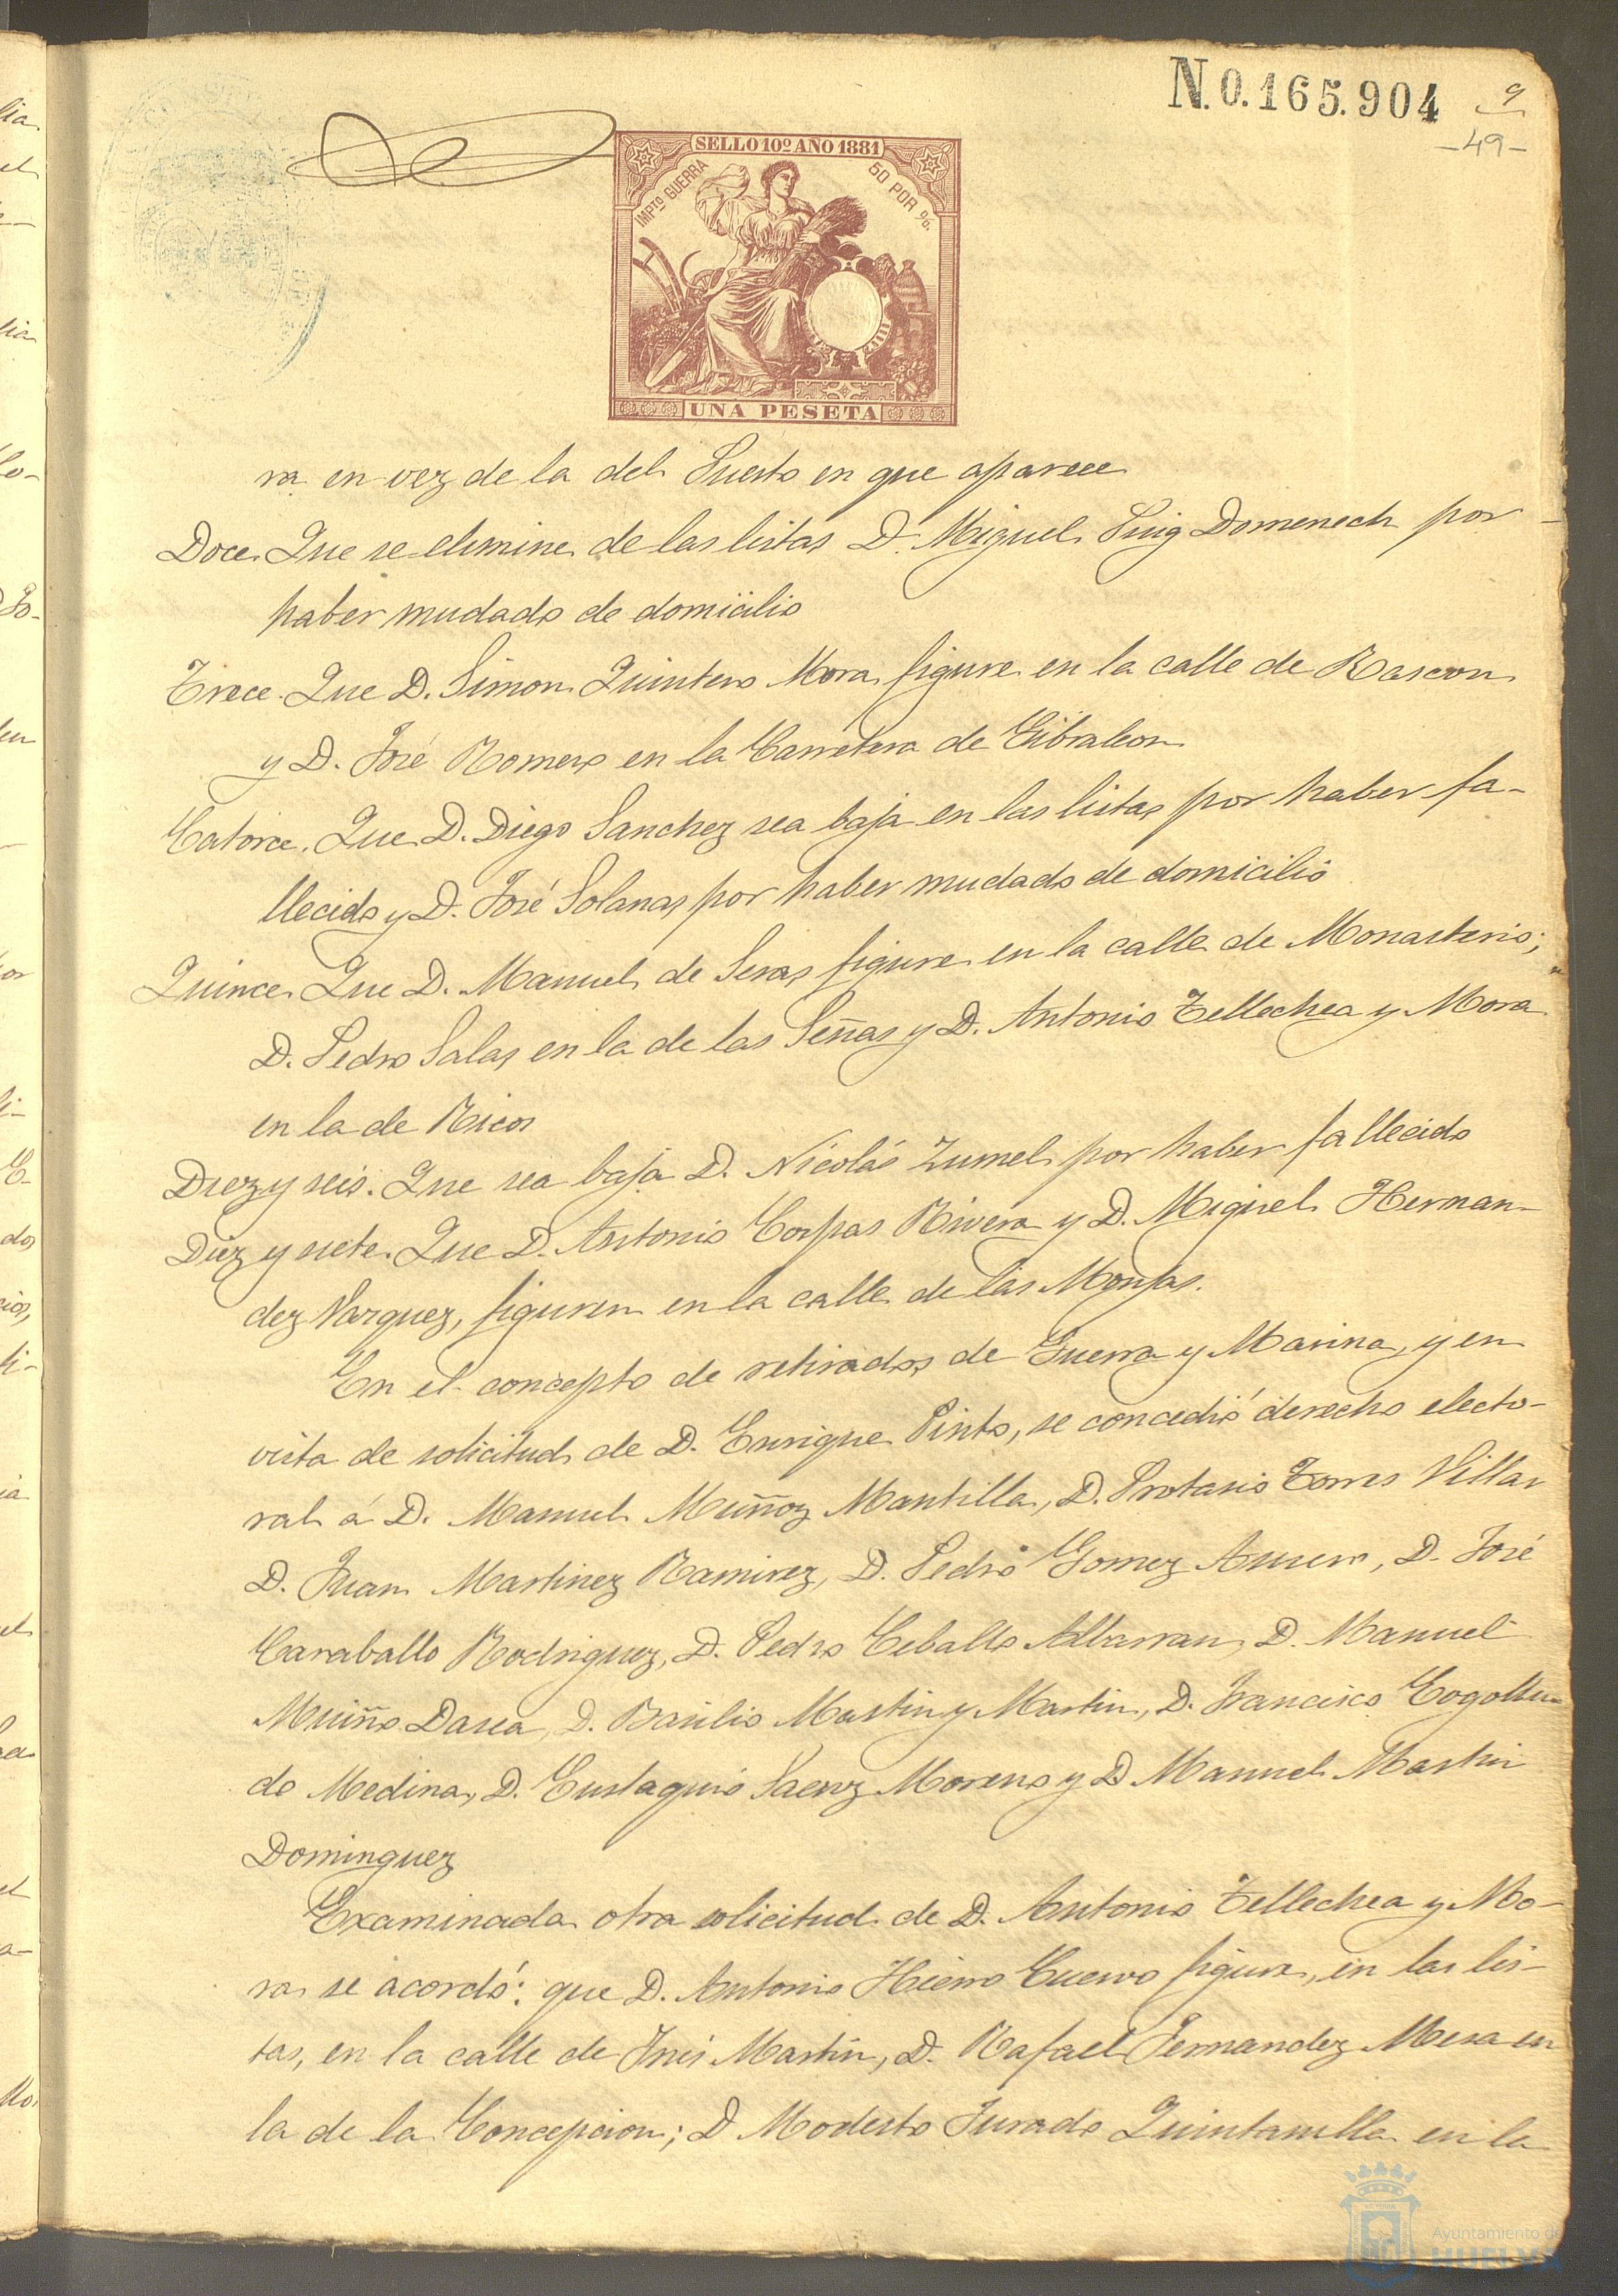 N.0.165.904
9
-49-
SELLO 10º AÑO 1881
IMPTO GUERRA
50 POR %.
UNA PESETA
ra en vez de la del Puerto en que aparece
Doce. Que se elimine de las listas D. Miguel Puig Domenech por
haber mudado de domicilio
Trece. Que D. Simon Quintero Mora figure en la calle de Rascon
y D. José Romero en la Carretera de Gibraleon
Catorce. Que D. Diego Sanchez sea baja en las listas por haber fa-
llecido y D. José Solanas por haber mudado de domicilio
Quince. Que D. Manuel de Seras figure en la calle de Monasterio;
D. Pedro Salas en la de las Señas y D. Antonio Tellechea y Mora
en la de Ricos
Diez y seis. Que sea baja D. Nicolás Zumel por haber fallecido
Diez y siete. Que D. Antonio Corpas Rivera y D. Miguel Hernan-
dez Vazquez, figuren en la calle de las Monjas.
En el concepto de retirados de Guerra y Marina, y en
vista de solicitud de D. Enrique Pinto, se concedió derecho electo-
ral á D. Manuel Muñoz Mantilla, D. Protasio Torres Villar
D. Juan Martinez Ramirez, D. Pedro Gomez D. José
Caraballo Rodriguez, D. Pedro Ceballo Albarran, D. Manuel
Muiño D. Basilio Martin y Martin, D. Francisco Cogollu
do Medina, D. Eustaquio Saenz Moreno y D Manuel Martin
Dominguez
Examinada otra solicitud de D. Antonio Tellechea y Mo-
ra se acordó: que D. Antonio Hierro Cuervo figure, en las lis-
tas, en la calle de Inés Martin, D. Rafael Fernandez Mesa en
la de la Concepcion; D Modesto Jurado Quintanilla en la
Ayuntamiento de
HUELVA